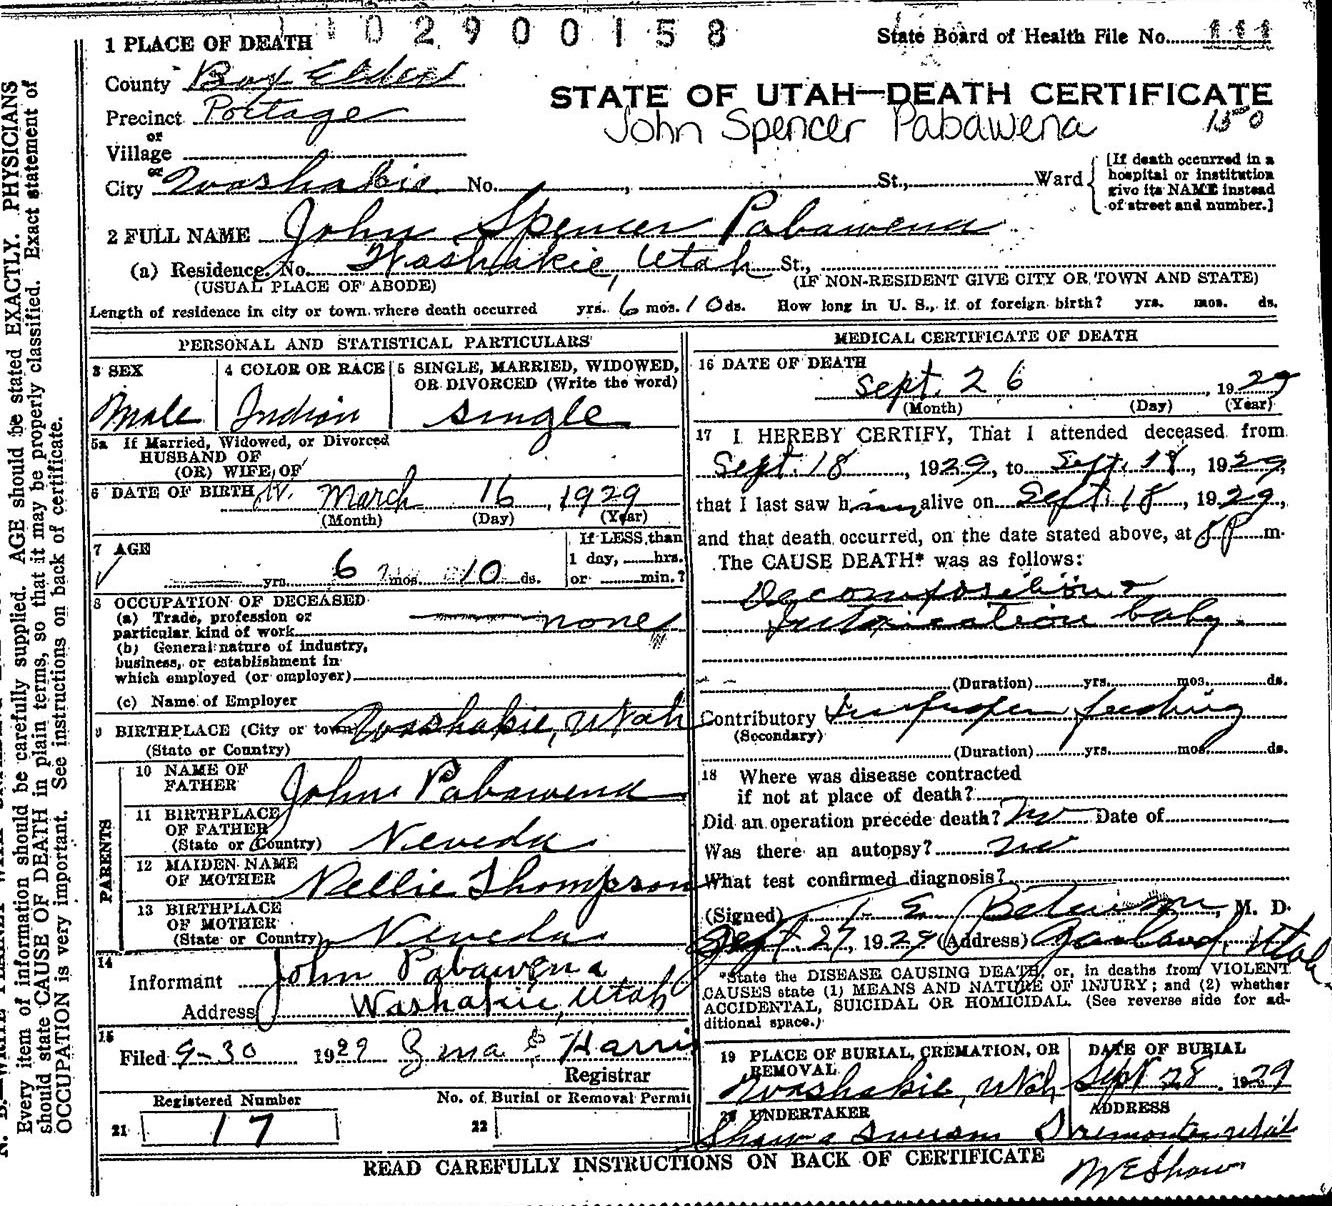 1 0 2 9 0 0 1 5 8
State Board of Health File No. 111
1 PLACE OF DEATH
County Box Elder
STATE OF UTAH—DEATH CERTIFICATE
Precinct Portage
John Spencer Pabawena
150
or
Village
or
City Washakie No. , St., Ward
[If death occurred in a
hospital or institution
give its NAME instead
of street and number.]
2 FULL NAME John Spencer Pabawena
(a) Residence, No. Washakie, Utah St.,
(USUAL PLACE OF ABODE) (IF NON-RESIDENT GIVE CITY OR TOWN AND STATE)
Length of residence in city or town where death occurred yrs. 6 mos. 10 ds. How long in U. S., if of foreign birth? yrs. mos. ds.
PERSONAL AND STATISTICAL PARTICULARS
3 SEX
Male
4 COLOR OR RACE
Indian
5 SINGLE, MARRIED, WIDOWED,
OR DIVORCED (Write the word)
single
5a If Married, Widowed, or Divorced
HUSBAND OF
(OR) WIFE OF
6 DATE OF BIRTH March 16, 1929
(Month) (Day) (Year)
7 AGE
yrs. 6 mos. 10 ds.
If LESS than
1 day, hrs.
or min.?
8 OCCUPATION OF DECEASED
(a) Trade, profession or
particular kind of work none
(b) General nature of industry,
business, or establishment in
which employed (or employer)
(c) Name of Employer
9 BIRTHPLACE (City or town) Washakie, Utah
(State or Country)
PARENTS
10 NAME OF
FATHER John Pabawena
11 BIRTHPLACE
OF FATHER
(State or Country) Neveda
12 MAIDEN NAME
OF MOTHER Nellie Thompson
13 BIRTHPLACE
OF MOTHER
(State or Country) Neveda
14
Informant John Pabawena
Address Washakie, Utah
15
Filed 9-30 1929 Harris
Registrar
Registered Number
21 17
No. of Burial or Removal Permit
22
MEDICAL CERTIFICATE OF DEATH
16 DATE OF DEATH
Sept. 26, 1929
(Month) (Day) (Year)
17 I HEREBY CERTIFY, That I attended deceased from
Sept. 18, 1929, to Sept. 18, 1929,
that I last saw him alive on Sept. 18, 1929,
and that death occurred, on the date stated above, at 8 P m.
The CAUSE DEATH* was as follows:
Decomposition &
Intoxication baby
(Duration) yrs. mos. ds.
Contributory Improper feeding
(Secondary)
(Duration) yrs. mos. ds.
18 Where was disease contracted
if not at place of death?
Did an operation precede death? no Date of
Was there an autopsy? no
What test confirmed diagnosis?
(Signed) , M. D.
Sept. 27, 1929 (Address) Garland, Utah
*State the DISEASE CAUSING DEATH, or, in deaths from VIOLENT
CAUSES state (1) MEANS AND NATURE OF INJURY; and (2) whether
ACCIDENTAL, SUICIDAL OR HOMICIDAL. (See reverse side for ad-
ditional space.)
19 PLACE OF BURIAL, CREMATION, OR
REMOVAL
Washakie, Utah
DATE OF BURIAL
Sept 28, 1929
20 UNDERTAKER
Shaw &
ADDRESS
Tremonton Utah
READ CAREFULLY INSTRUCTIONS ON BACK OF CERTIFICATE
M E Shaw
Every item of information should be carefully supplied. AGE should be stated EXACTLY. PHYSICIANS
should state CAUSE OF DEATH in plain terms, so that it may be properly classified. Exact statement of
OCCUPATION is very important. See instructions on back of certificate.